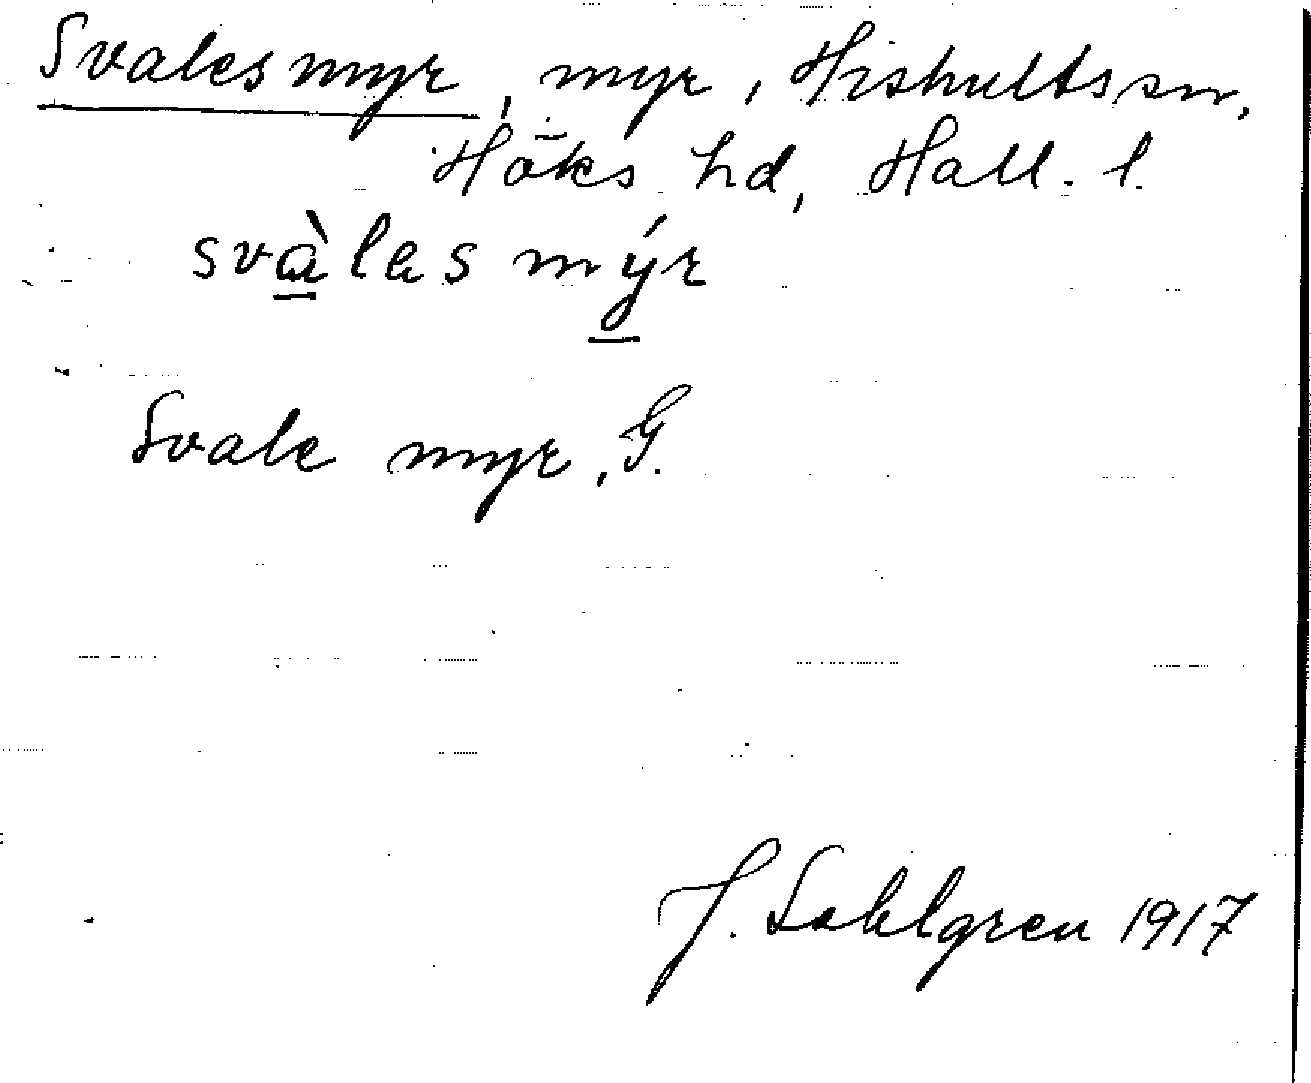 Svalesmyr, myr, Hishults sn,
Höks hd, Hall. l.
svàles mýr
Svale myr, G.
J. Sahlgren 1917